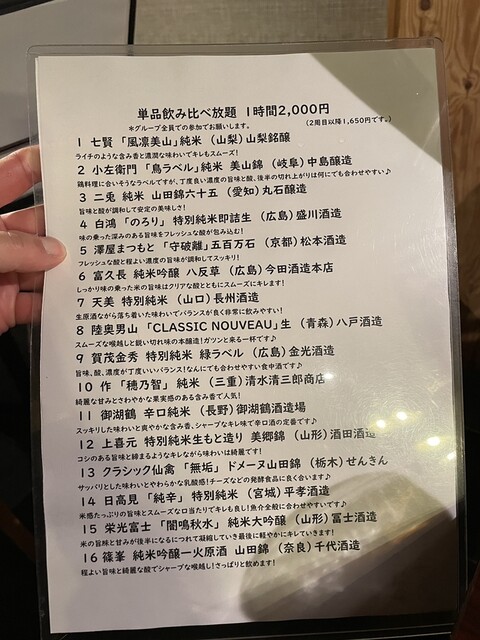 単品飲み比べ放題 1時間2,000円
＊グループ全員での参加でお願いします。 （2周目以降1,650円です。）
1 七賢 「風凛美山」純米 （山梨）山梨銘醸
ライチのような含み香と濃潤な味わいでキレもスムーズ！
2 小左衛門 「鳥ラベル」純米 美山錦 （岐阜）中島醸造
鶏料理に合いそうなラベルですが、丁度良い濃度の旨味と酸、後半の切れ上がりは何にでも合わせやすい♪
3 二兎 純米 山田錦六十五 （愛知）丸石醸造
旨味と酸が調和して安定の美味しさ！
4 白鴻 「のろり」 特別純米即詰生 （広島）盛川酒造
味の乗った深みのある旨味をフレッシュな酸が包み込む！
5 澤屋まつもと 「守破離」五百万石 （京都）松本酒造
フレッシュな酸と程よい濃度の旨味が調和してスッキリ！
6 富久長 純米吟醸 八反草 （広島）今田酒造本店
しっかり味の乗った米の旨味はクリアな酸とともにスムーズにキレます！
7 天美 特別純米 （山口）長州酒造
生原酒ながら落ち着いた味わいでバランスが良く非常に飲みやすい！
8 陸奥男山 「CLASSIC NOUVEAU」生 （青森）八戸酒造
スムーズな喉越しと鋭い切れ味の本醸造！ガツンと来る一杯です♪
9 賀茂金秀 特別純米 緑ラベル （広島）金光酒造
旨味、酸、濃度が丁度いいバランス！なんにでも合わせやすい食中酒です♪
10 作 「穂乃智」 純米 （三重）清水清三郎商店
綺麗な甘みとさわやかな果実感のある含み香で人気！
11 御湖鶴 辛口純米 （長野）御湖鶴酒造場
スッキリした味わいと爽やかな含み香、シャープなキレ味で辛口酒の定番です♪
12 上喜元 特別純米生もと造り 美郷錦 （山形）酒田酒造
コシのある旨味と締まるようなキレながら味わいは綺麗です！
13 クラシック仙禽 「無垢」 ドメーヌ山田錦 （栃木）せんきん
サッパリとした味わいとやわらかな乳酸感！チーズなどの発酵食品に良く合います♪
14 日高見 「純辛」 特別純米 （宮城）平孝酒造
米感たっぷりの旨味とスムーズな口当たりでキレも良し！魚介全般に合わせやすいです♪
15 栄光冨士 「闇鳴秋水」 純米大吟醸 （山形）冨士酒造
米の旨味と甘みが後半になるにつれて凝縮していき最後に軽やかにキレていきます！
16 篠峯 純米吟醸一火原酒 山田錦 （奈良）千代酒造
程よい旨味と綺麗な酸でシャープな喉越し！さっぱりと飲めます！